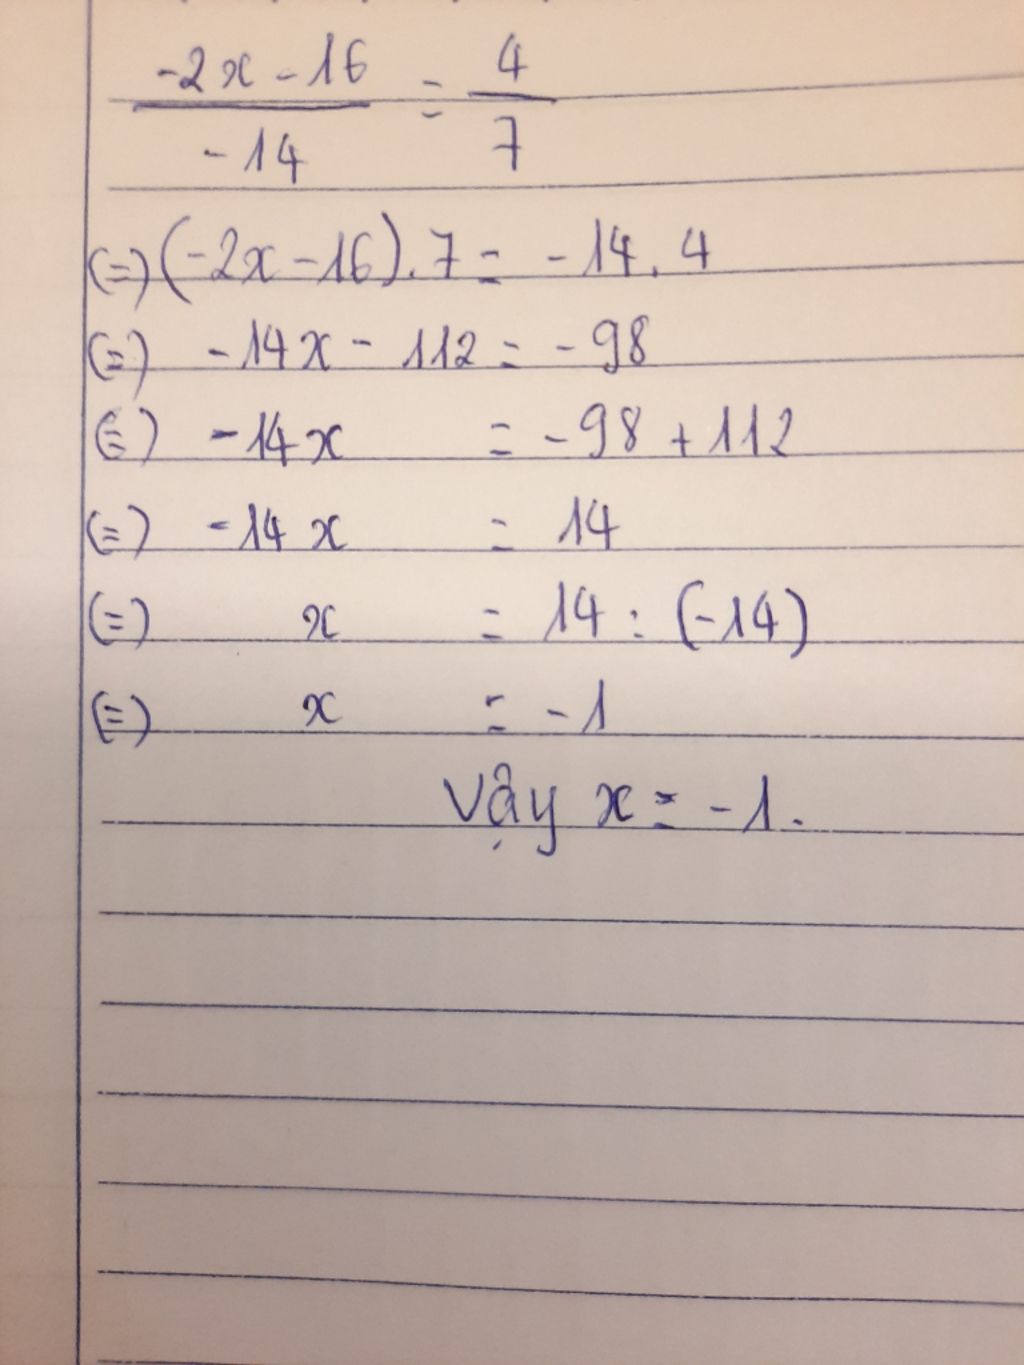 -2x - 16 / -14 = 4 / 7
(=) (-2x - 16) . 7 = -14 . 4
(=) -14x - 112 = -98
(=) -14x = -98 + 112
(=) -14x = 14
(=) x = 14 : (-14)
(=) x = -1
Vậy x = -1.